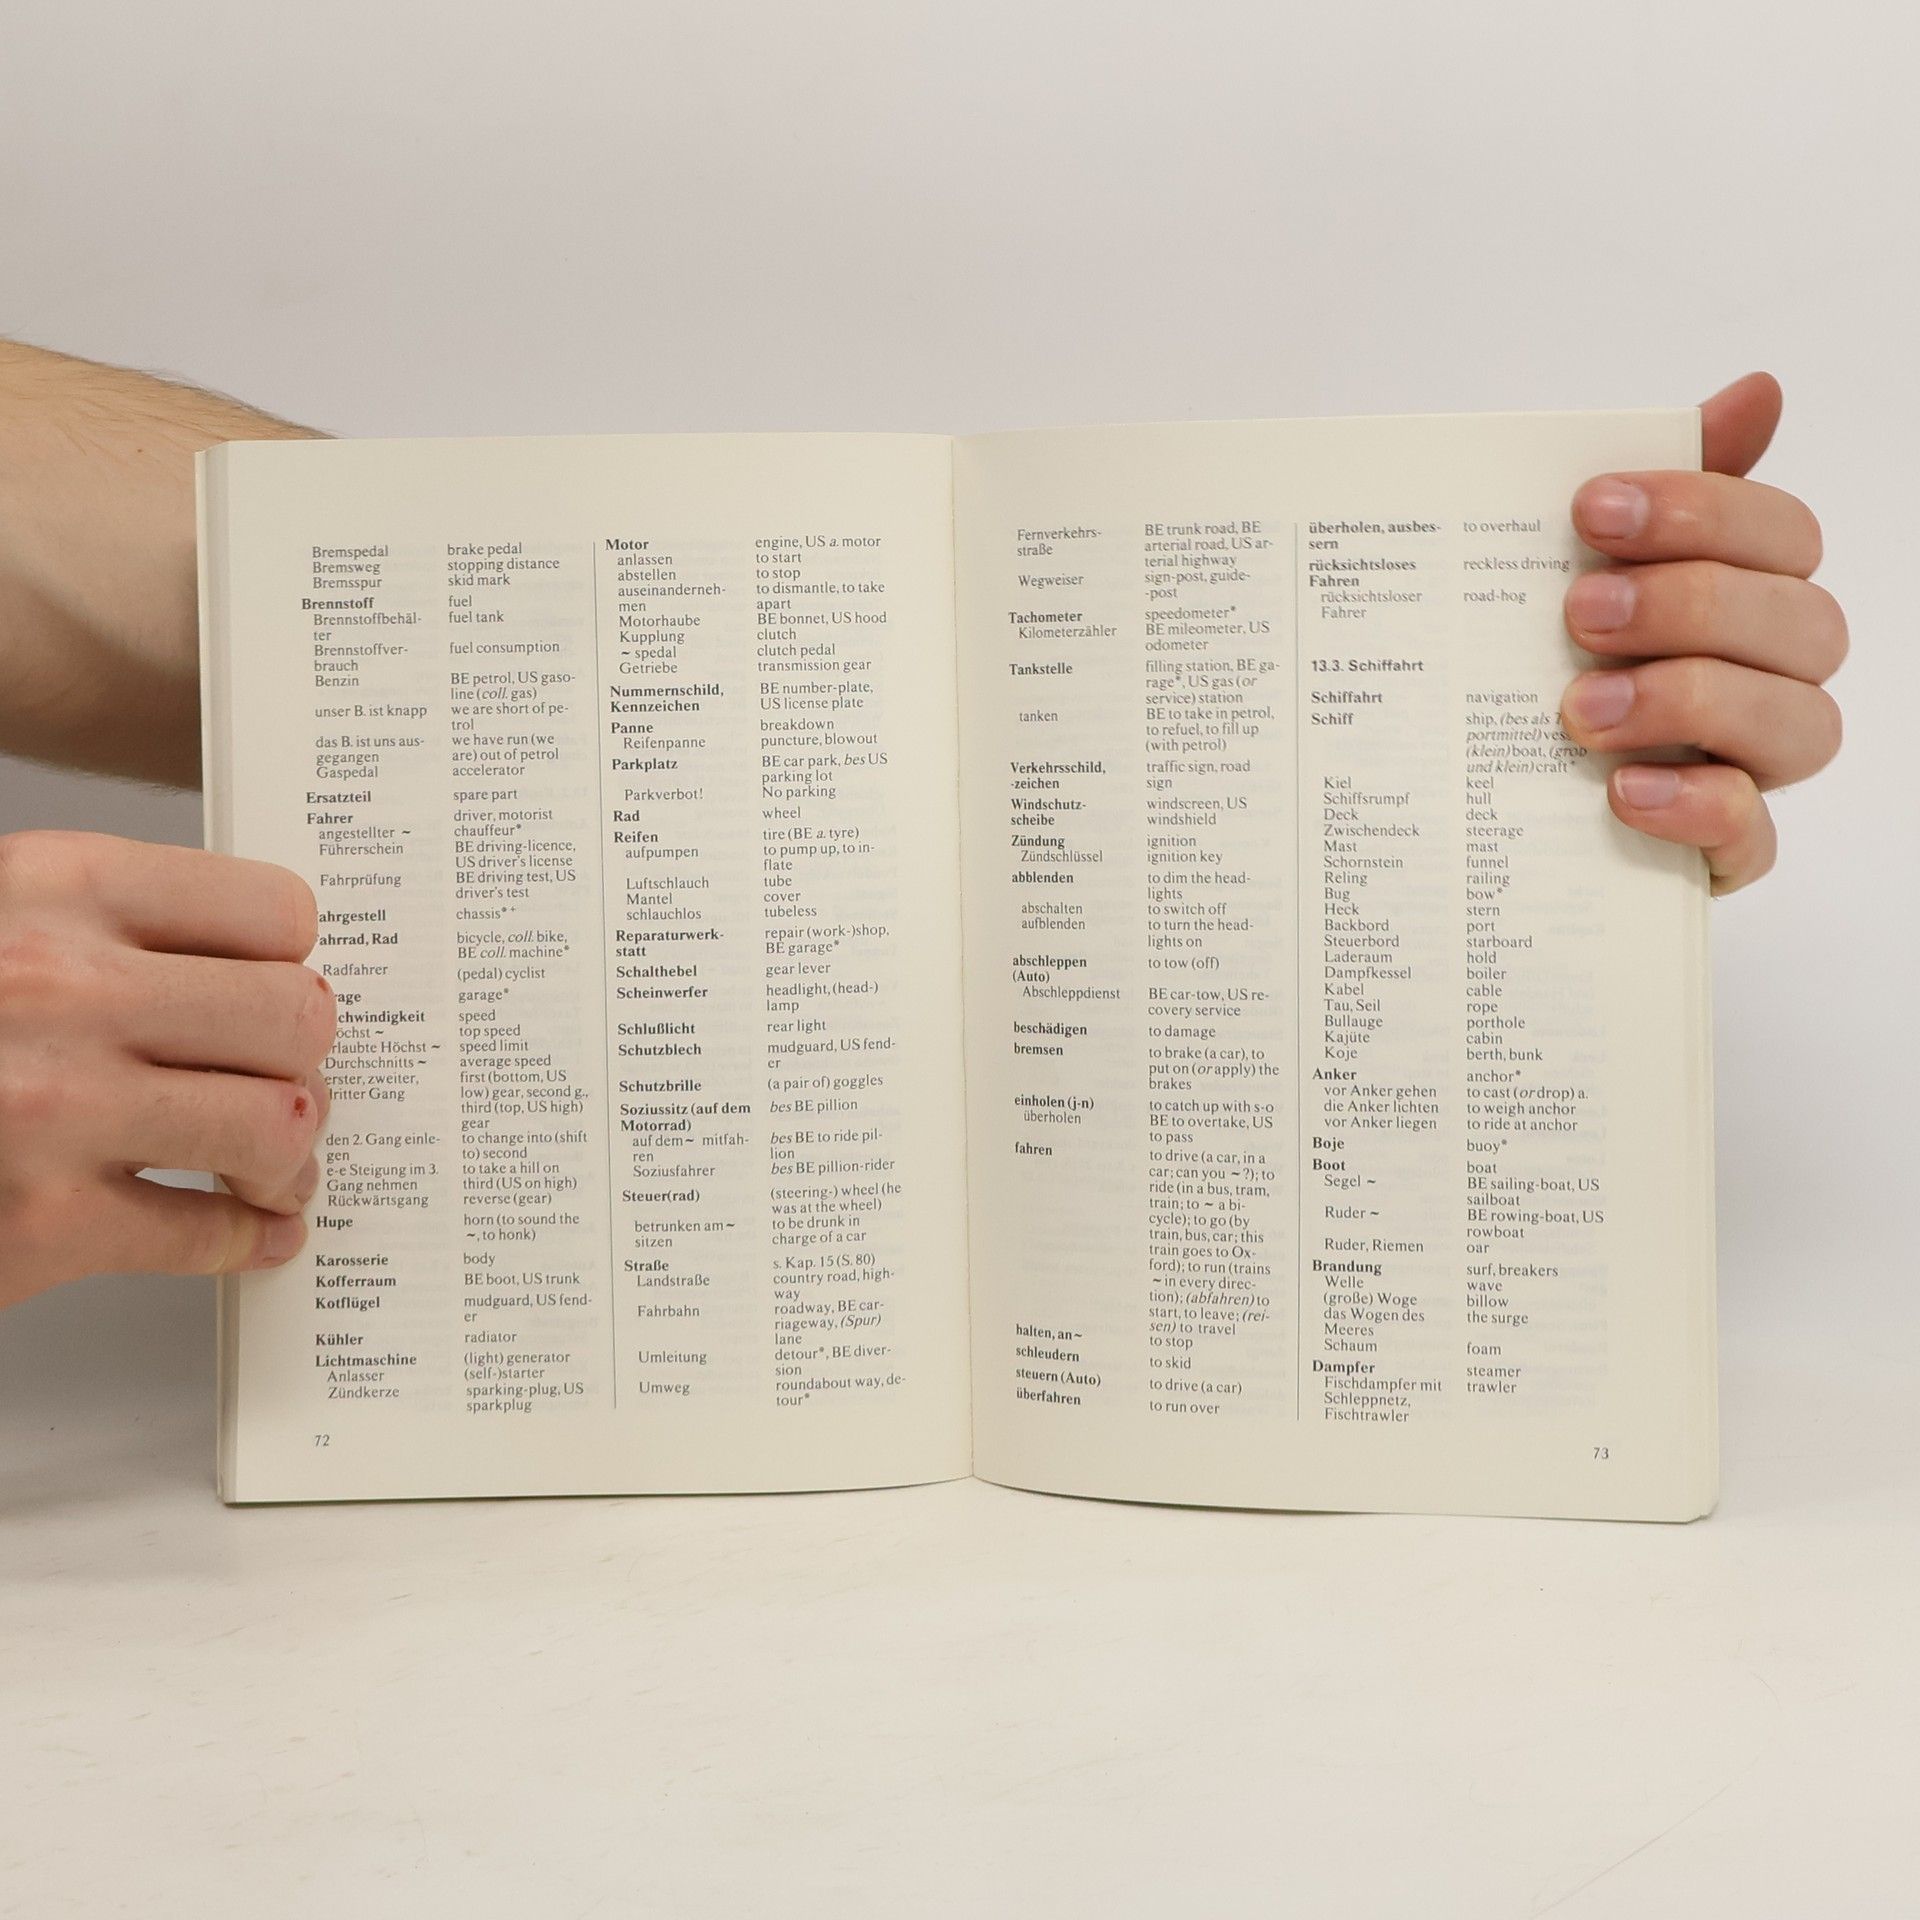 Bremspedal brake pedal
Bremsweg stopping distance
Bremsspur skid mark
Brennstoff fuel
Brennstoffbehäl- fuel tank
ter
Brennstoffver- fuel consumption
brauch
Benzin BE petrol, US gaso-
line (coll. gas)
unser B. ist knapp we are short of pe-
trol
das B. ist uns aus- we have run (we
gegangen are) out of petrol
Gaspedal accelerator
Ersatzteil spare part
Fahrer driver, motorist
angestellter ~ chauffeur*
Führerschein BE driving-licence,
US driver's license
Fahrprüfung BE driving test, US
driver's test
ahrgestell chassis*+
ahrrad, Rad bicycle, coll. bike,
BE coll. machine*
Radfahrer (pedal) cyclist
rage garage*
chwindigkeit speed
öchst ~ top speed
rlaubte Höchst ~ speed limit
Durchschnitts ~ average speed
erster, zweiter, first (bottom, US
ritter Gang low) gear, second g.,
third (top, US high)
gear
den 2. Gang einle- to change into (shift
gen to) second
e-e Steigung im 3. to take a hill on
Gang nehmen third (US on high)
Rückwärtsgang reverse (gear)
Hupe horn (to sound the
~, to honk)
Karosserie body
Kofferraum BE boot, US trunk
Kotflügel mudguard, US fend-
er
Kühler radiator
Lichtmaschine (light) generator
Anlasser (self-)starter
Zündkerze sparking-plug, US
sparkplug
Motor engine, US a. motor
anlassen to start
abstellen to stop
auseinanderneh- to dismantle, to take
men apart
Motorhaube BE bonnet, US hood
Kupplung clutch
~ spedal clutch pedal
Getriebe transmission gear
Nummernschild, BE number-plate,
Kennzeichen US license plate
Panne breakdown
Reifenpanne puncture, blowout
Parkplatz BE car park, bes US
parking lot
Parkverbot! No parking
Rad wheel
Reifen tire (BE a. tyre)
aufpumpen to pump up, to in-
flate
Luftschlauch tube
Mantel cover
schlauchlos tubeless
Reparaturwerk- repair (work-)shop,
statt BE garage*
Schalthebel gear lever
Scheinwerfer headlight, (head-)
lamp
Schlußlicht rear light
Schutzblech mudguard, US fend-
er
Schutzbrille (a pair of) goggles
Soziussitz (auf dem bes BE pillion
Motorrad)
auf dem ~ mitfah- bes BE to ride pil-
ren lion
Soziusfahrer bes BE pillion-rider
Steuer(rad) (steering-) wheel (he
was at the wheel)
betrunken am ~ to be drunk in
sitzen charge of a car
Straße s. Kap. 15 (S. 80)
Landstraße country road, high-
way
Fahrbahn roadway, BE car-
riageway, (Spur)
lane
Umleitung detour*, BE diver-
sion
Umweg roundabout way, de-
tour*
72
Fernverkehrs- BE trunk road, BE
straße arterial road, US ar-
terial highway
Wegweiser sign-post, guide-
-post
Tachometer speedometer*
Kilometerzähler BE mileometer, US
odometer
Tankstelle filling station, BE ga-
rage*, US gas (or
service) station
tanken BE to take in petrol,
to refuel, to fill up
(with petrol)
Verkehrsschild, traffic sign, road
-zeichen sign
Windschutz- windscreen, US
scheibe windshield
Zündung ignition
Zündschlüssel ignition key
abblenden to dim the head-
lights
abschalten to switch off
aufblenden to turn the head-
lights on
abschleppen to tow (off)
(Auto)
Abschleppdienst BE car-tow, US re-
covery service
beschädigen to damage
bremsen to brake (a car), to
put on (or apply) the
brakes
einholen (j-n) to catch up with s-o
überholen BE to overtake, US
to pass
fahren to drive (a car, in a
car; can you ~?); to
ride (in a bus, tram,
train; to ~ a bi-
cycle); to go (by
train, bus, car; this
train goes to Ox-
ford); to run (trains
~ in every direc-
tion); (abfahren) to
start, to leave; (rei-
sen) to travel
halten, an ~ to stop
schleudern to skid
steuern (Auto) to drive (a car)
überfahren to run over
überholen, ausbes- to overhaul
sern
rücksichtsloses reckless driving
Fahren
rücksichtsloser road-hog
Fahrer
13.3. Schiffahrt
Schiffahrt navigation
Schiff ship, (bes als
portmittel) ves
(klein) boat, (grob
und klein) craft*
Kiel keel
Schiffsrumpf hull
Deck deck
Zwischendeck steerage
Mast mast
Schornstein funnel
Reling railing
Bug bow*
Heck stern
Backbord port
Steuerbord starboard
Laderaum hold
Dampfkessel boiler
Kabel cable
Tau, Seil rope
Bullauge porthole
Kajüte cabin
Koje berth, bunk
Anker anchor*
vor Anker gehen to cast (or drop) a.
die Anker lichten to weigh anchor
vor Anker liegen to ride at anchor
Boje buoy*
Boot boat
Segel ~ BE sailing-boat, US
sailboat
Ruder ~ BE rowing-boat, US
rowboat
Ruder, Riemen oar
Brandung surf, breakers
Welle wave
(große) Woge billow
das Wogen des the surge
Meeres
Schaum foam
Dampfer steamer
Fischdampfer mit trawler
Schleppnetz,
Fischtrawler
73